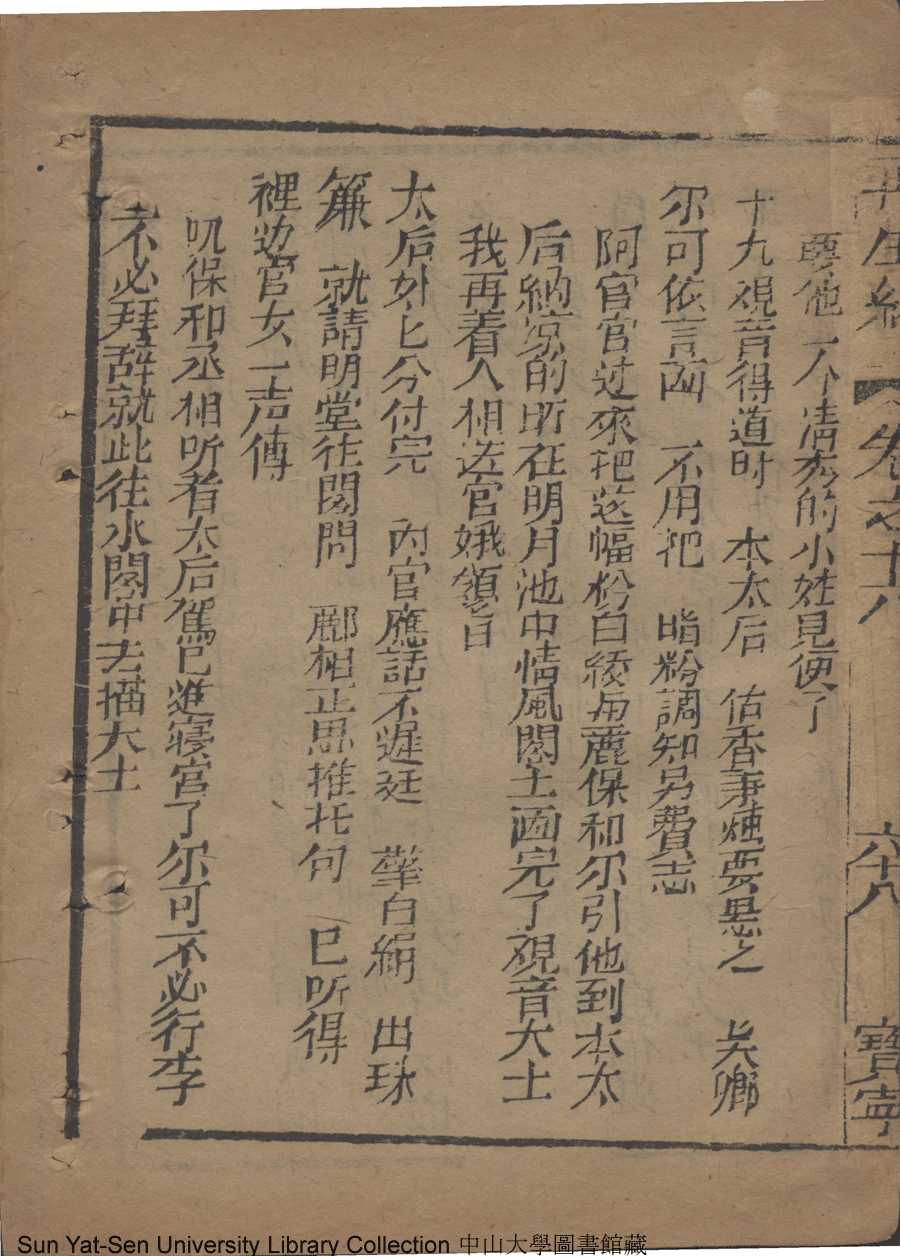 再生緣 卷之十八 六十八 寶寧
要他一个清秀的小姓見便了
十九覌音得道时 本太后 估香事煙要思之 吴卿
尔可依言画 不用把 暗粉調知另費志
阿官官过來把这幅粉白綾与麗保和尔引他到本太
后納凉的所在明月池中情風閣土画完了覌音大士
我再着人相送官娥領旨
太后外匕分付完 內官應話不遲廷 擎白絹 出珠
簾 就請明堂往閣問 酈相正思推托句 已听得
裡边官女一声傳
吼保和丞相听着太后駕已進寝宮了尔可不必行李
不必拜辞就此往水閣中去描大士
Sun Yat-Sen University Library Collection 中山大學圖書館藏